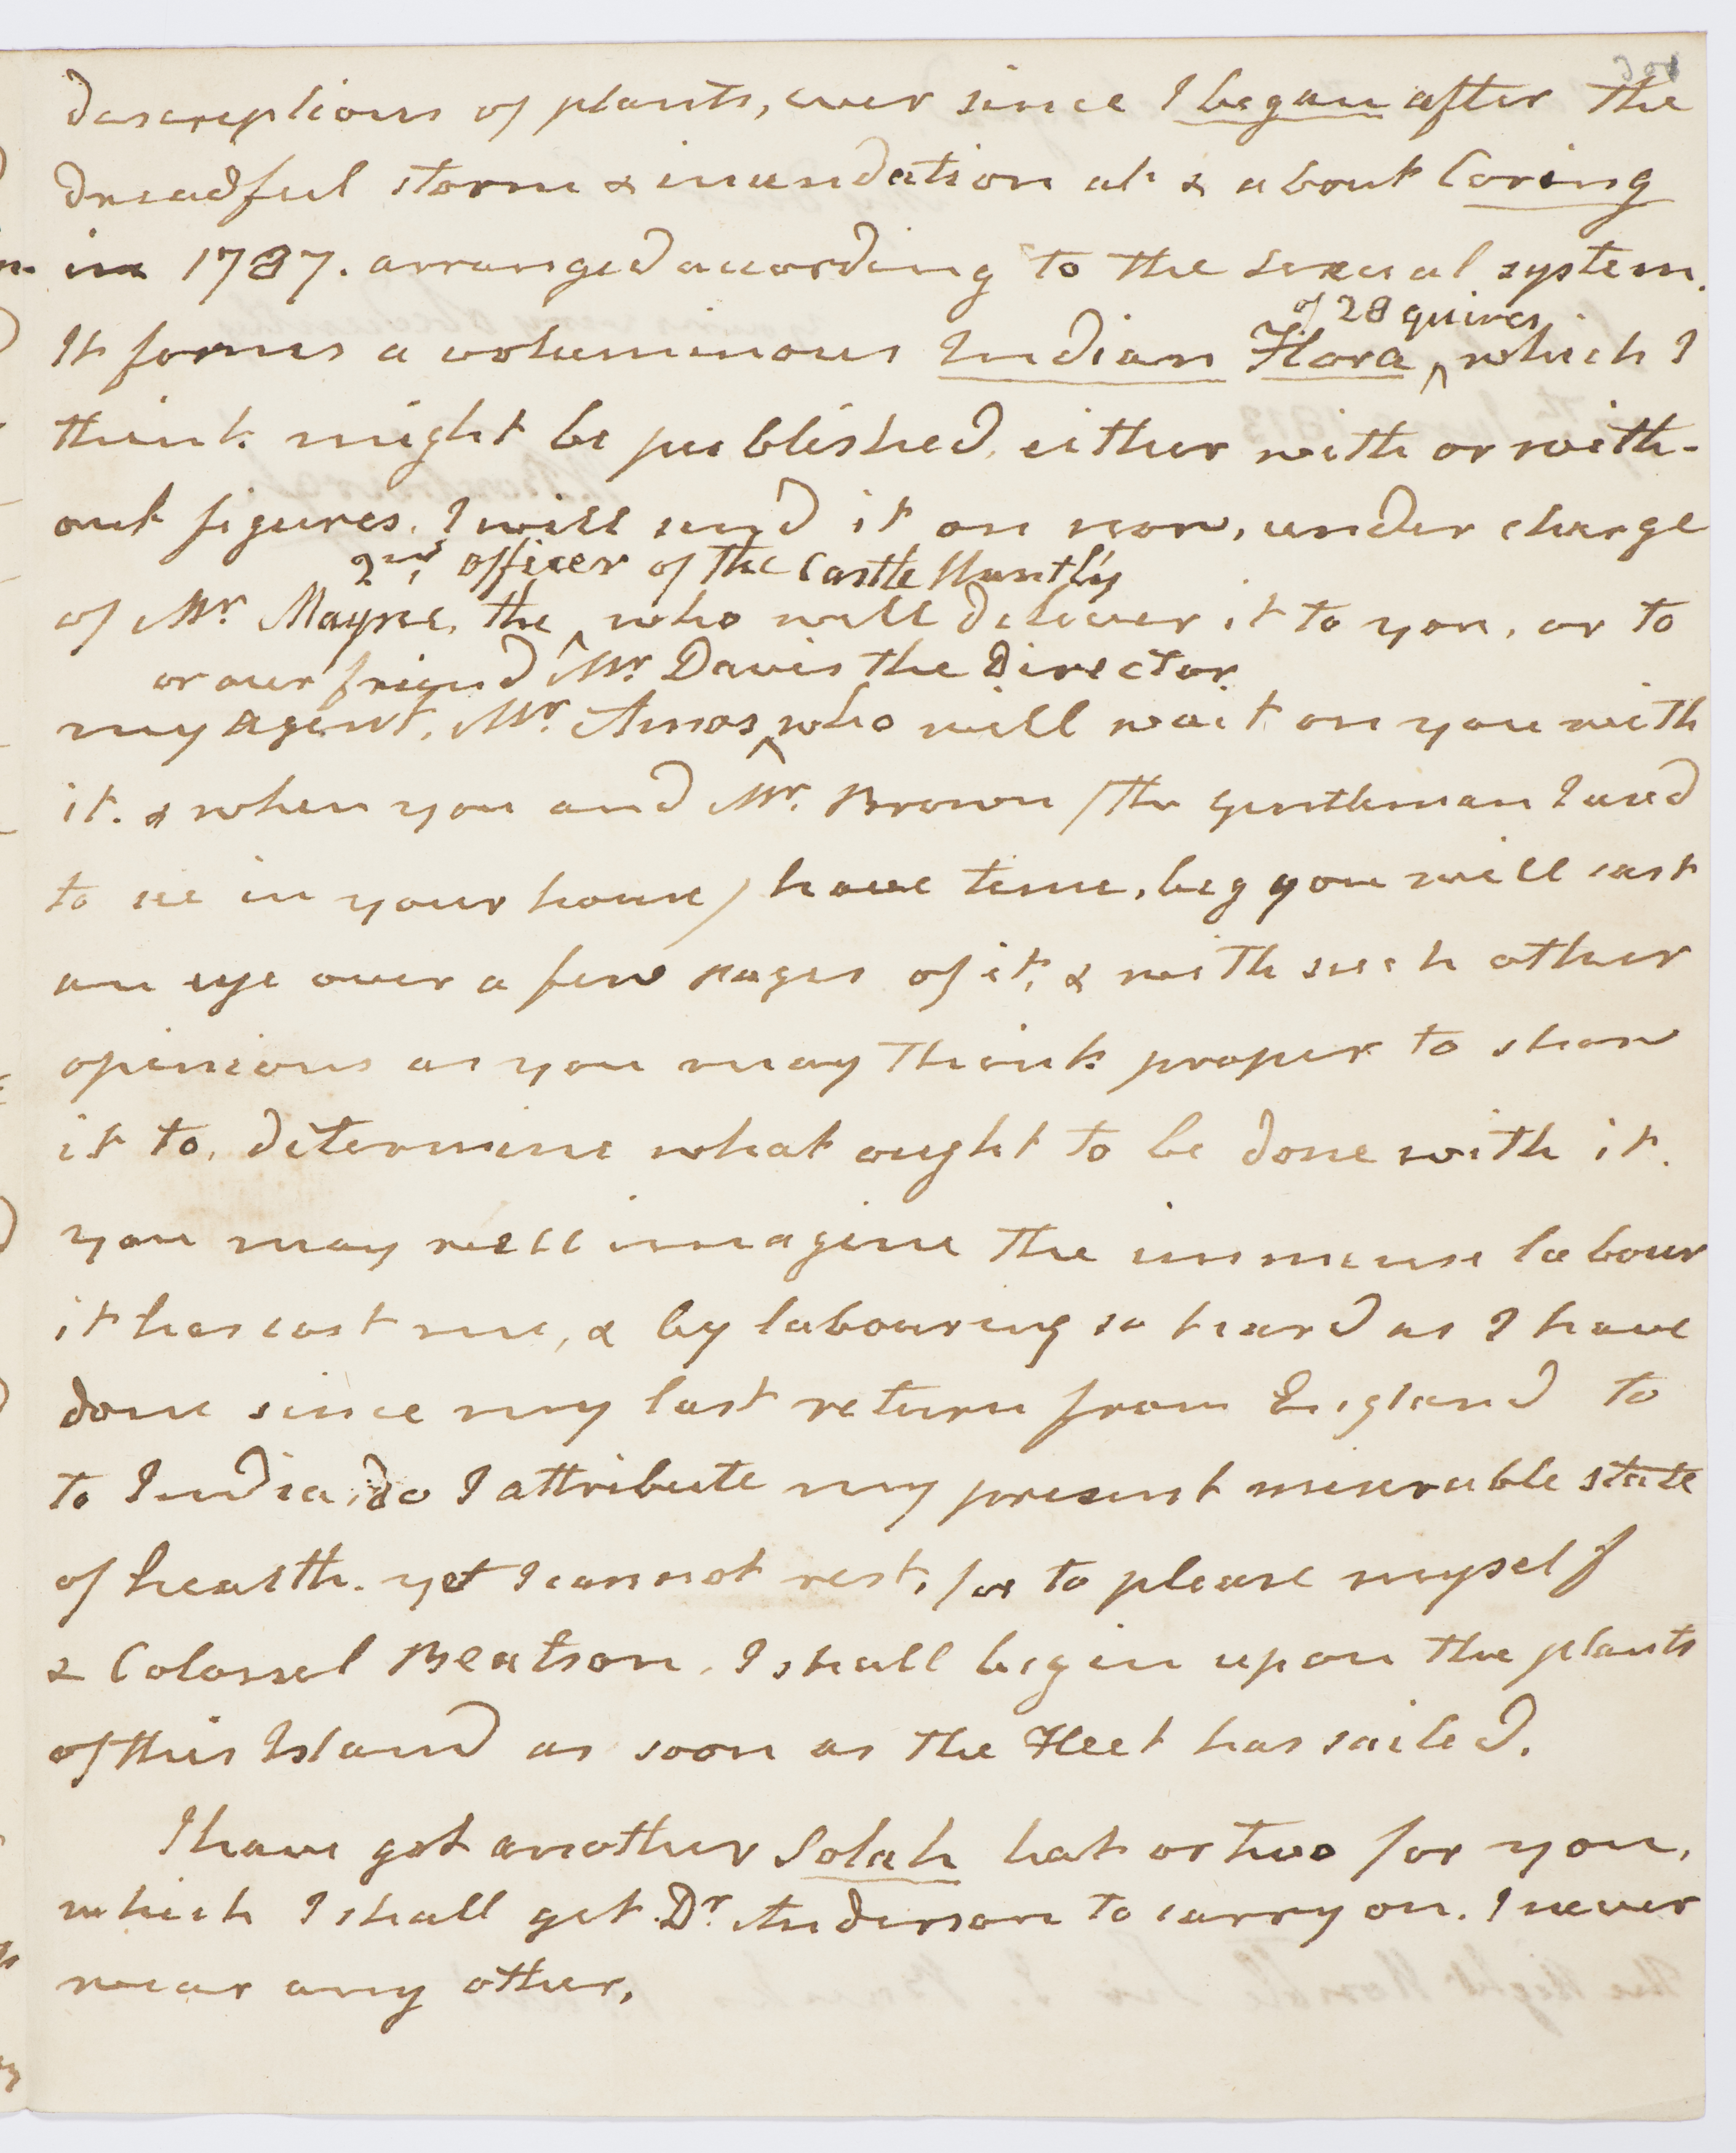 descreptions of plants, ever since I began after the
dreadful storm & inundation at & about Coring
in 1787. arranged according to the sexual system.
of 28 quires
It forms a voluminous Indian Flora ^ which I
think might be published, either with or with-
out figures. I will send it on now, under charge
2nd officer of the Castle Huntly
of Mr Mayne, the ^ who will deliver it to you, or to
or our friend Mr Davis the Director
my agent, Mr Amos ^ who will wait on you with
it. & when you and Mr. Brown /the gentleman I used
to see in your house/ have time, beg you will cast
an eye over a few pages of it, & with such other
opinions as you may think proper to show
it to, determine what ought to be done with it.
you may well imagine the immense labour
it has cost me, & by labouring so hard as I have
done since my last return from England to
to India, do I attribute my present miserable state
of health. yet I cannot rest, for to please myself
& Colonel Beatson, I shall begin upon the plants
of this Island as soon as the Fleet has sailed.
I have got another Solah hat or two for you,
which I shall get Dr Anderson to carry on. I never
wear any other.